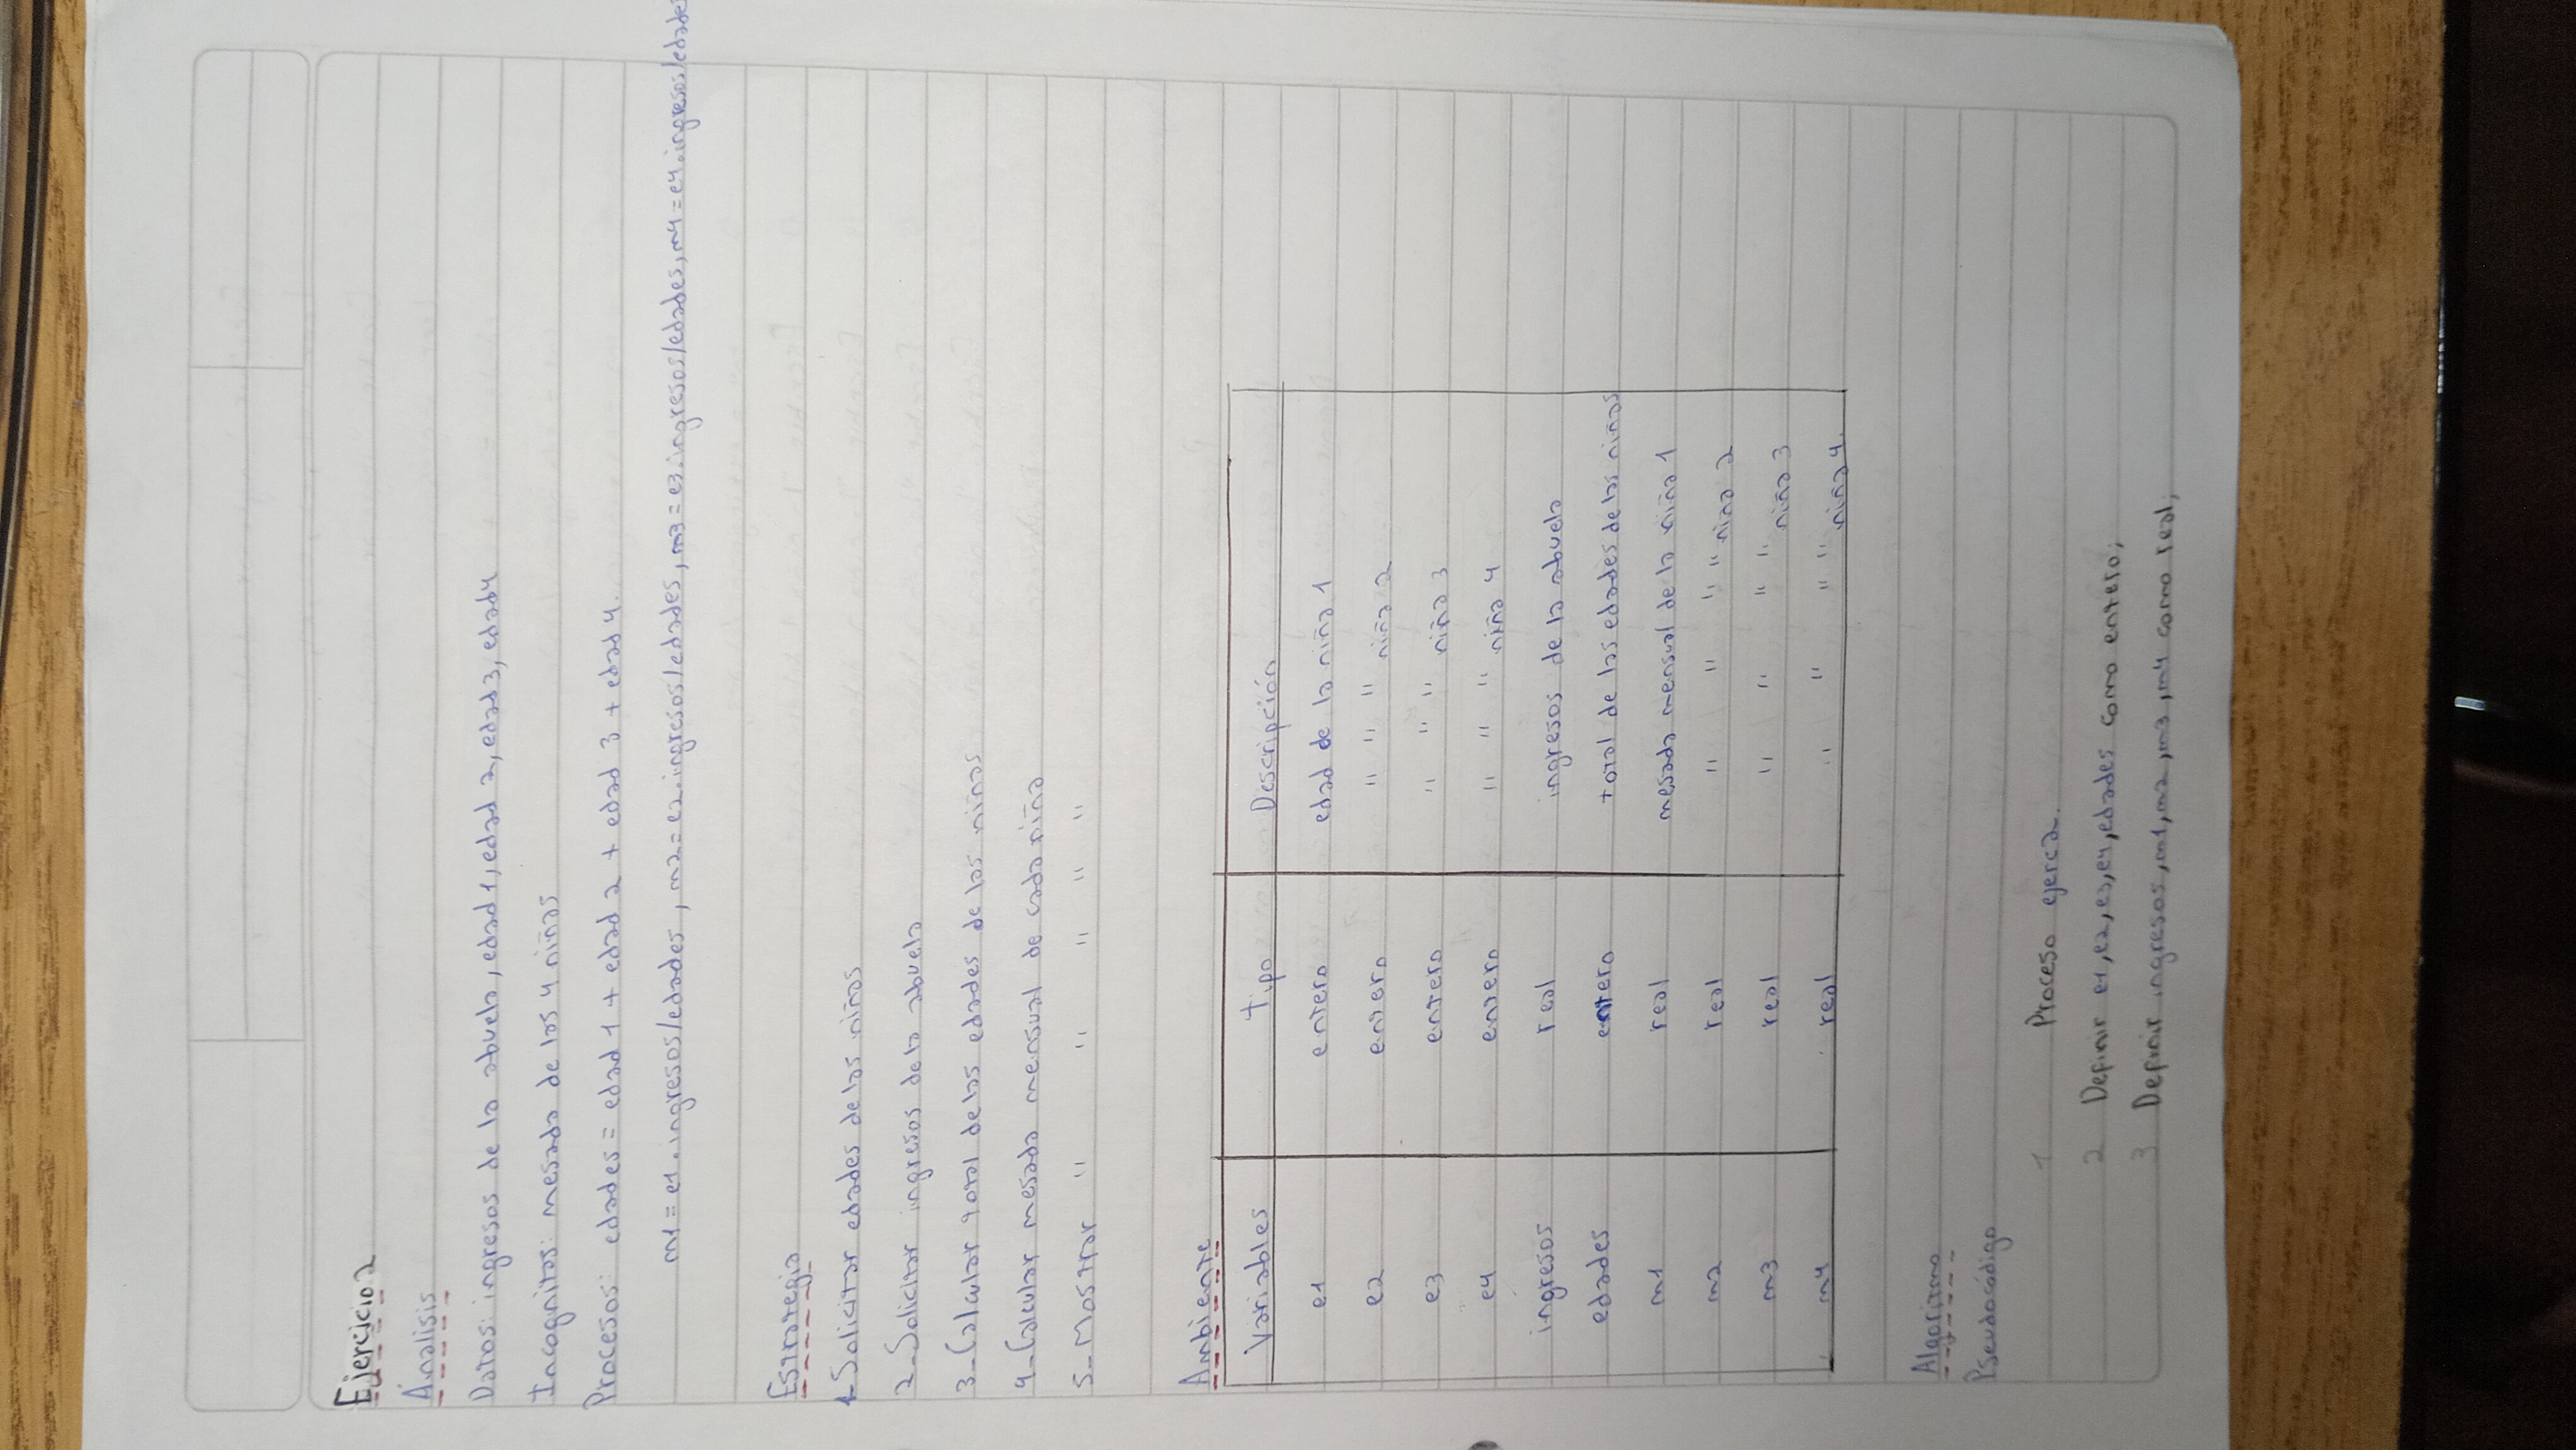 Ejercicio 2
Analisis
Datos: ingresos de la abuela, edad 1, edad 2, edad 3, edad 4
Incognitas: mesada de las 4 niñas
Procesos: edades = edad 1 + edad 2 + edad 3 + edad 4.
m1 = e1.ingresos/edades, m2 = e2.ingresos/edades, m3 = e3.ingresos/edades, m4 = e4.ingresos/edades
Estrategia
1-Solicitar edades de las niñas
2-Solicitar ingresos de la abuela
3-Calcular total de las edades de las niñas
4-Calcular mesada mensual de cada niña
5-Mostrar " " " " "
Ambiente
Variables tipo Descripción
e1 entero edad de la niña 1
e2 entero " " " niña 2
e3 entero " " " niña 3
e4 entero " " " niña 4
ingresos real ingresos de la abuela
edades entero total de las edades de las niñas
m1 real mesada mensual de la niña 1
m2 real " " " " niña 2
m3 real " " " " niña 3
m4 real " " " " niña 4.
Algoritmo
Pseudocódigo
1 Proceso ejerc2.
2 Definir e1, e2, e3, e4, edades como entero;
3 Definir ingresos, m1, m2, m3, m4 como real;